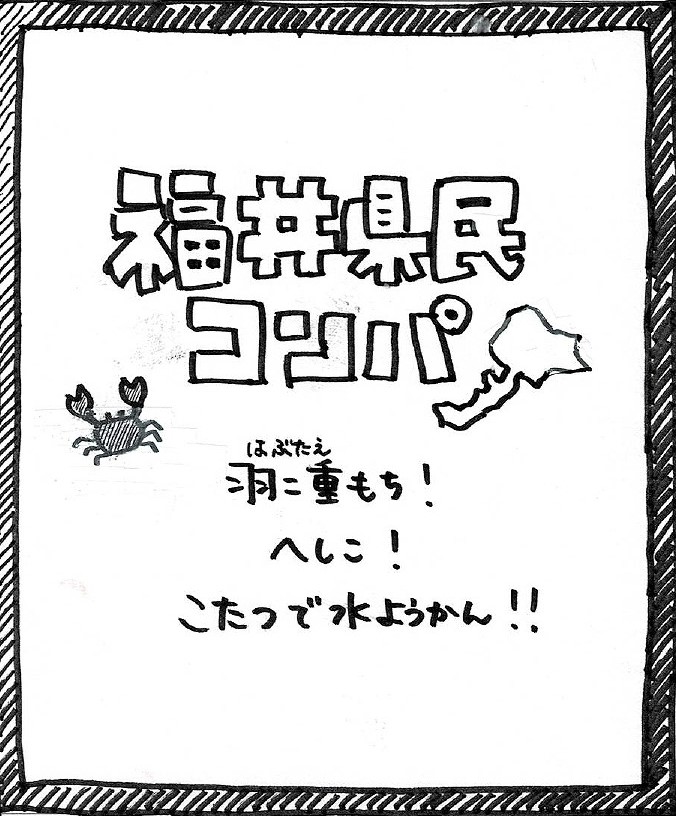 福井県民
コンパ
はぶたえ
羽二重もち！
へしこ！
こたつで水ようかん！！